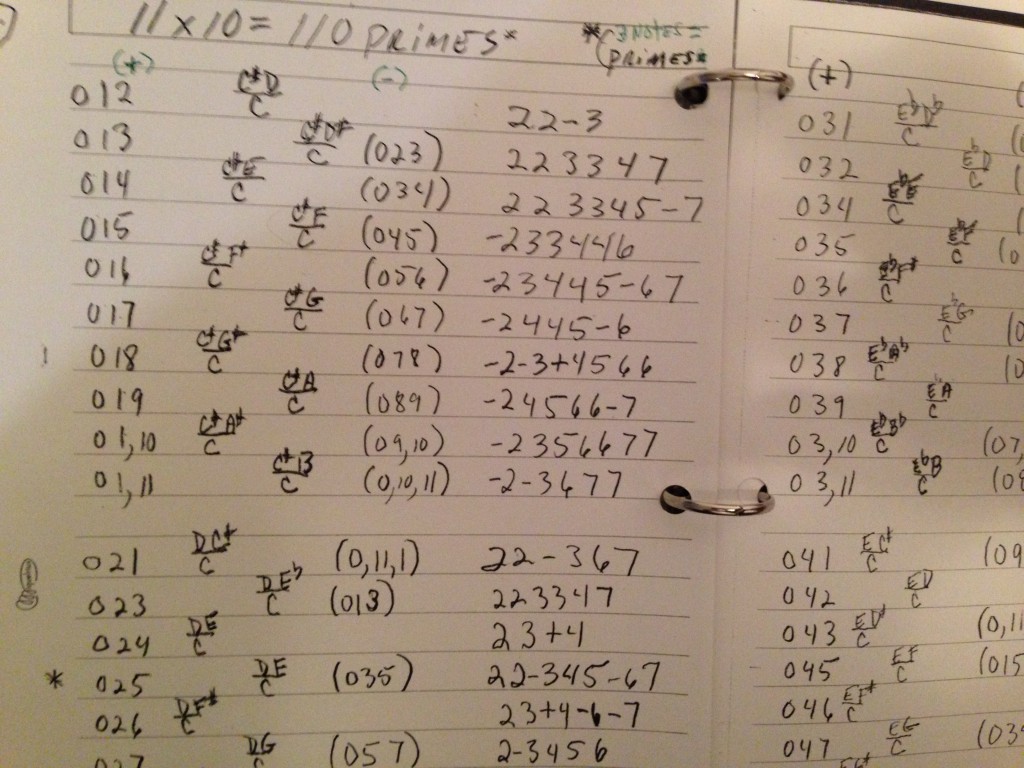 11 x 10 = 110 PRIMES* *(3 NOTES = PRIMES*
(+) (-)
012 C#D/C 22-3
013 C#D#/C (023) 223347
014 C#E/C (034) 223345-7
015 C#F/C (045) -2334446
016 C#F#/C (056) -23445-67
017 C#G/C (067) -2445-6
018 C#G#/C (078) -2-3+4566
019 C#A/C (089) -24566-7
01,10 C#A#/C (09,10) -2356677
01,11 C#B/C (0,10,11) -2-3677
021 DC#/C (0,11,1) 22-367
023 DEb/C (013) 223347
024 DE/C 23+4
* 025 DE/C (035) 22-345-67
026 DF#/C 23+4-6-7
027 DG/C (057) 2-3456
(+)
031 EbDb/C
032 EbD/C
034 EbE/C
035 EbF/C
036 EbF#/C
037 EbG/C
038 EbAb/C
039 EbA/C
03,10 EbBb/C (07,
03,11 EbB/C
041 EC#/C (09
042 ED/C
043 ED#/C (0,11
045 EF/C (015
046 EF#/C
047 EG/C (03